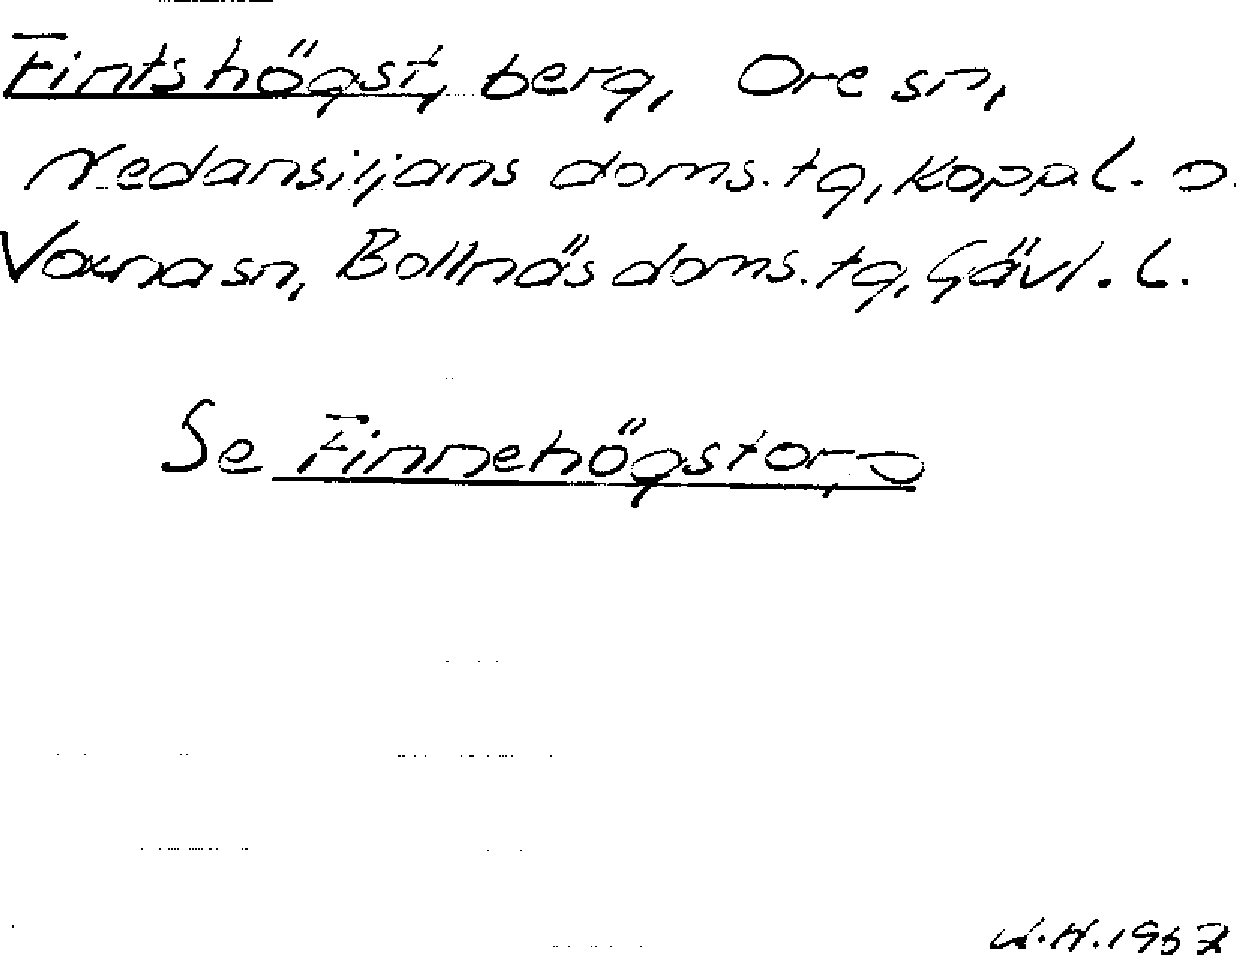 Fintshögst, berg, Ore sn,
Nedansiljans doms. tg, Koppl. o.
Voxna sn, Bollnäs doms. tg, Gävl. l.
Se Finnehögstorp
1967